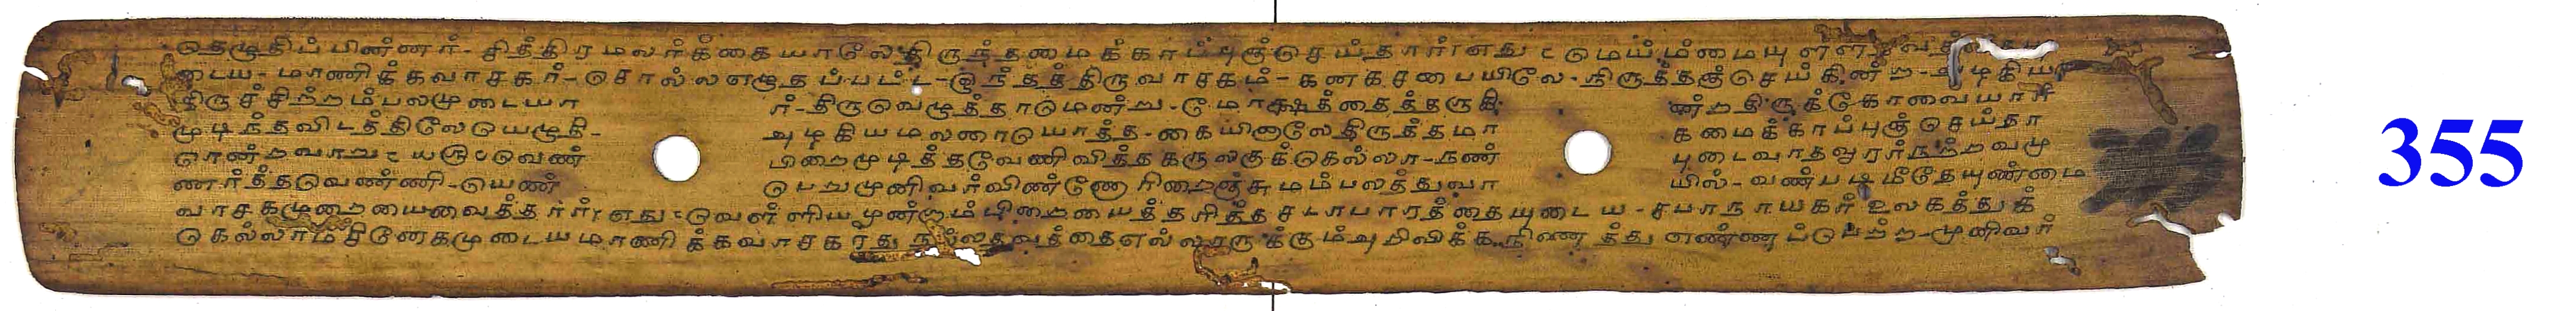 தெழுதிப்பின்னர்- சித்திரமலர்க்கையாலே திருந்தமைக்காப்புஞ்செய்தார் எது மெய்ம்மையுள்ள
டைய- மாணிக்கவாசகர்- சொல்லஎழுதப்பட்ட- இந்தத்திருவாசகம்- கனகசபையிலே- நிருத்தஞ்செய்கின்ற- அழகிய
திருச்சிற்றம்பலமுடையார்- திருவெழுத்தாமென்று- மோக்ஷத்தைத்தருகின்றதிருக்கோவையார்
முடிந்தவிடத்திலேயெழுதி- அழகியமலரையொத்த- கையினாலேதிருத்தமாகமைக்காப்புஞ்செய்தா
ரென்றவாறு வெண்பிறைமுடித்தவேணிவித்தகருலகுக்கெல்லா- நண்புடைவாதவூரர்நற்றவமு
ணர்த்தவெண்ணி- யெண்பெறுமுனிவர்விண்ணோரிறைஞ்சுமம்பலத்துவாயில்- வண்படிமீதேயுண்மை
வாசகமுறையைவைத்தார் எது வெள்ளியமுண்டும்பிறையைத்தரித்த சடாபாரத்தையுடைய- சபாநாயகர் உலகத்துக்
கெல்லாம் சிநேகமுடையமாணிக்கவாசகரது நல்லதவத்தைஎல்லாருக்கும்அறிவிக்க நினைத்து எண்ணப்பெற்ற- முனிவர்
355